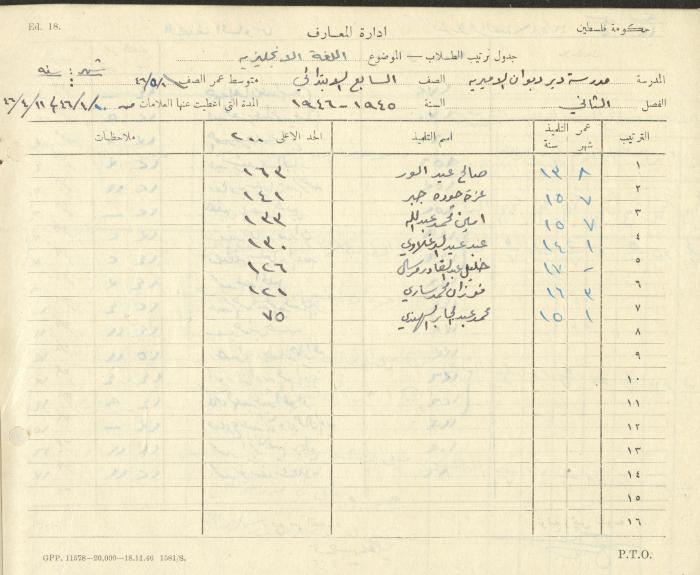 Ed. 18.
حكومة فلسطين
ادارة المعارف
جدول ترتيب الطلاب — الموضوع اللغة الانجليزيه
المدرسة مدرسة دير ديوان الاميريه الصف السابع الابتدائي متوسط عمر الصف شهر : سنه
الفصل الثاني السنة ١٩٤٥ – ١٩٤٦ المدة التي اعطيت عنها العلامات من
الترتيب عمر التلميذ شهر سنة اسم التلميذ الحد الاعلى ٢٠٠ ملاحظات
١ ٨ ١٣ صالح عيد النور ١٦٣
٢ ٧ ١٥ عزة جوده جبر ١٤١
٣ ٧ ١٥ امين محمد عبدالله ١٣٣
٤ ١ ١٤ ١٣٠
٥ - ١٧ خليل عبدالقادر ١٢٦
٦ ٣ ١٦ فوزان محمد ١٢١
٧ ١ ١٥ محمد عبدالجابر ٧٥
٨
٩
١٠
١١
١٢
١٣
١٤
١٥
١٦
GPP. 11578—20,000—18.11.46 1581/S.
P.T.O.